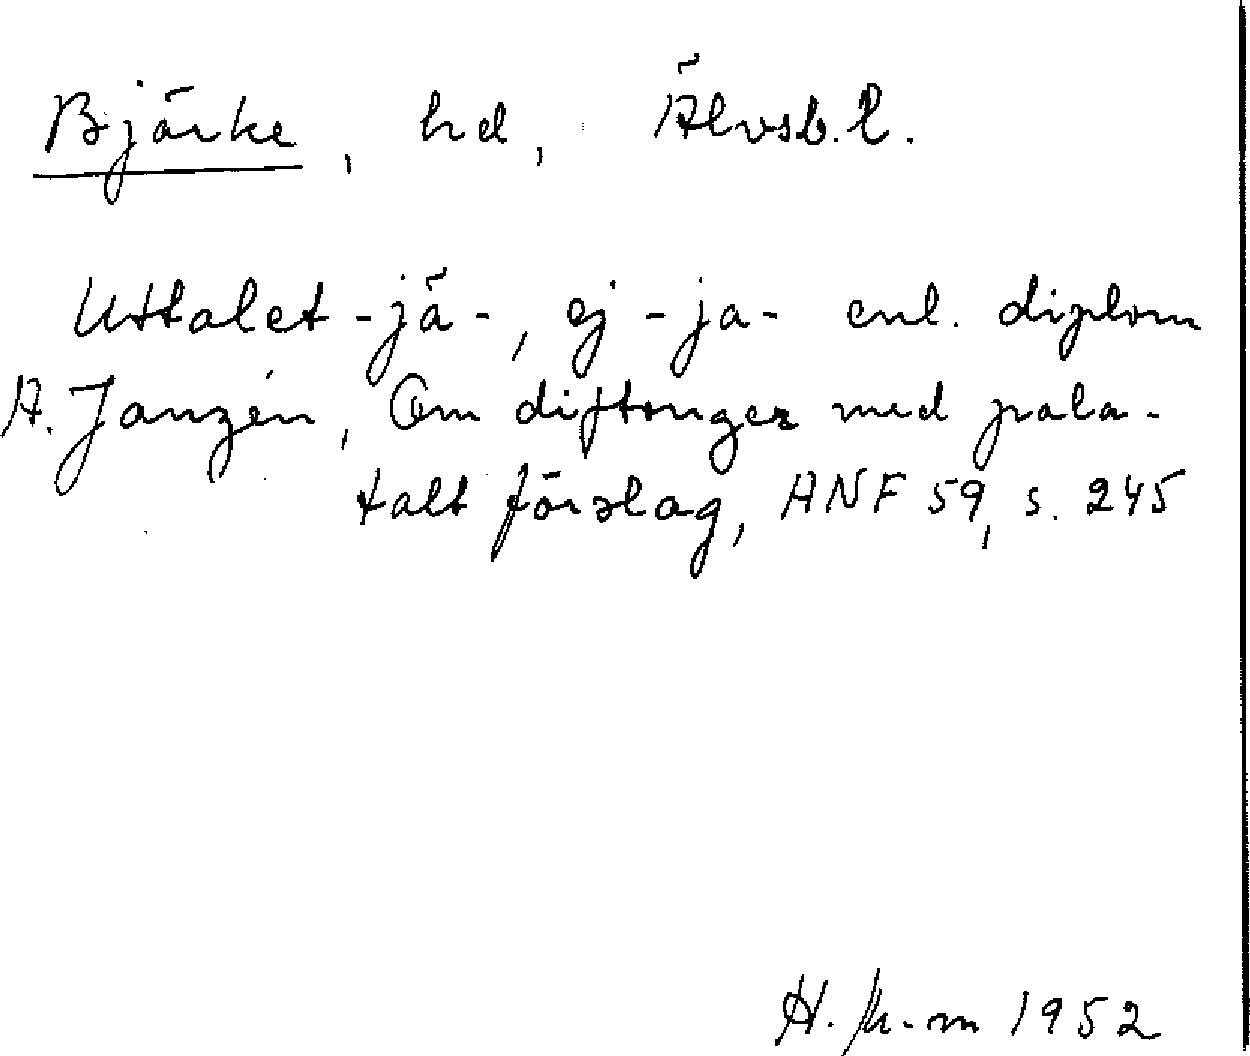 Bjärke, hd, Älvsb. l.
Uttalet -jä-, ej -ja- enl. diplom
A. Janzén, Om diftonger med pala-
talt förslag, ANF 59, s. 245
1952